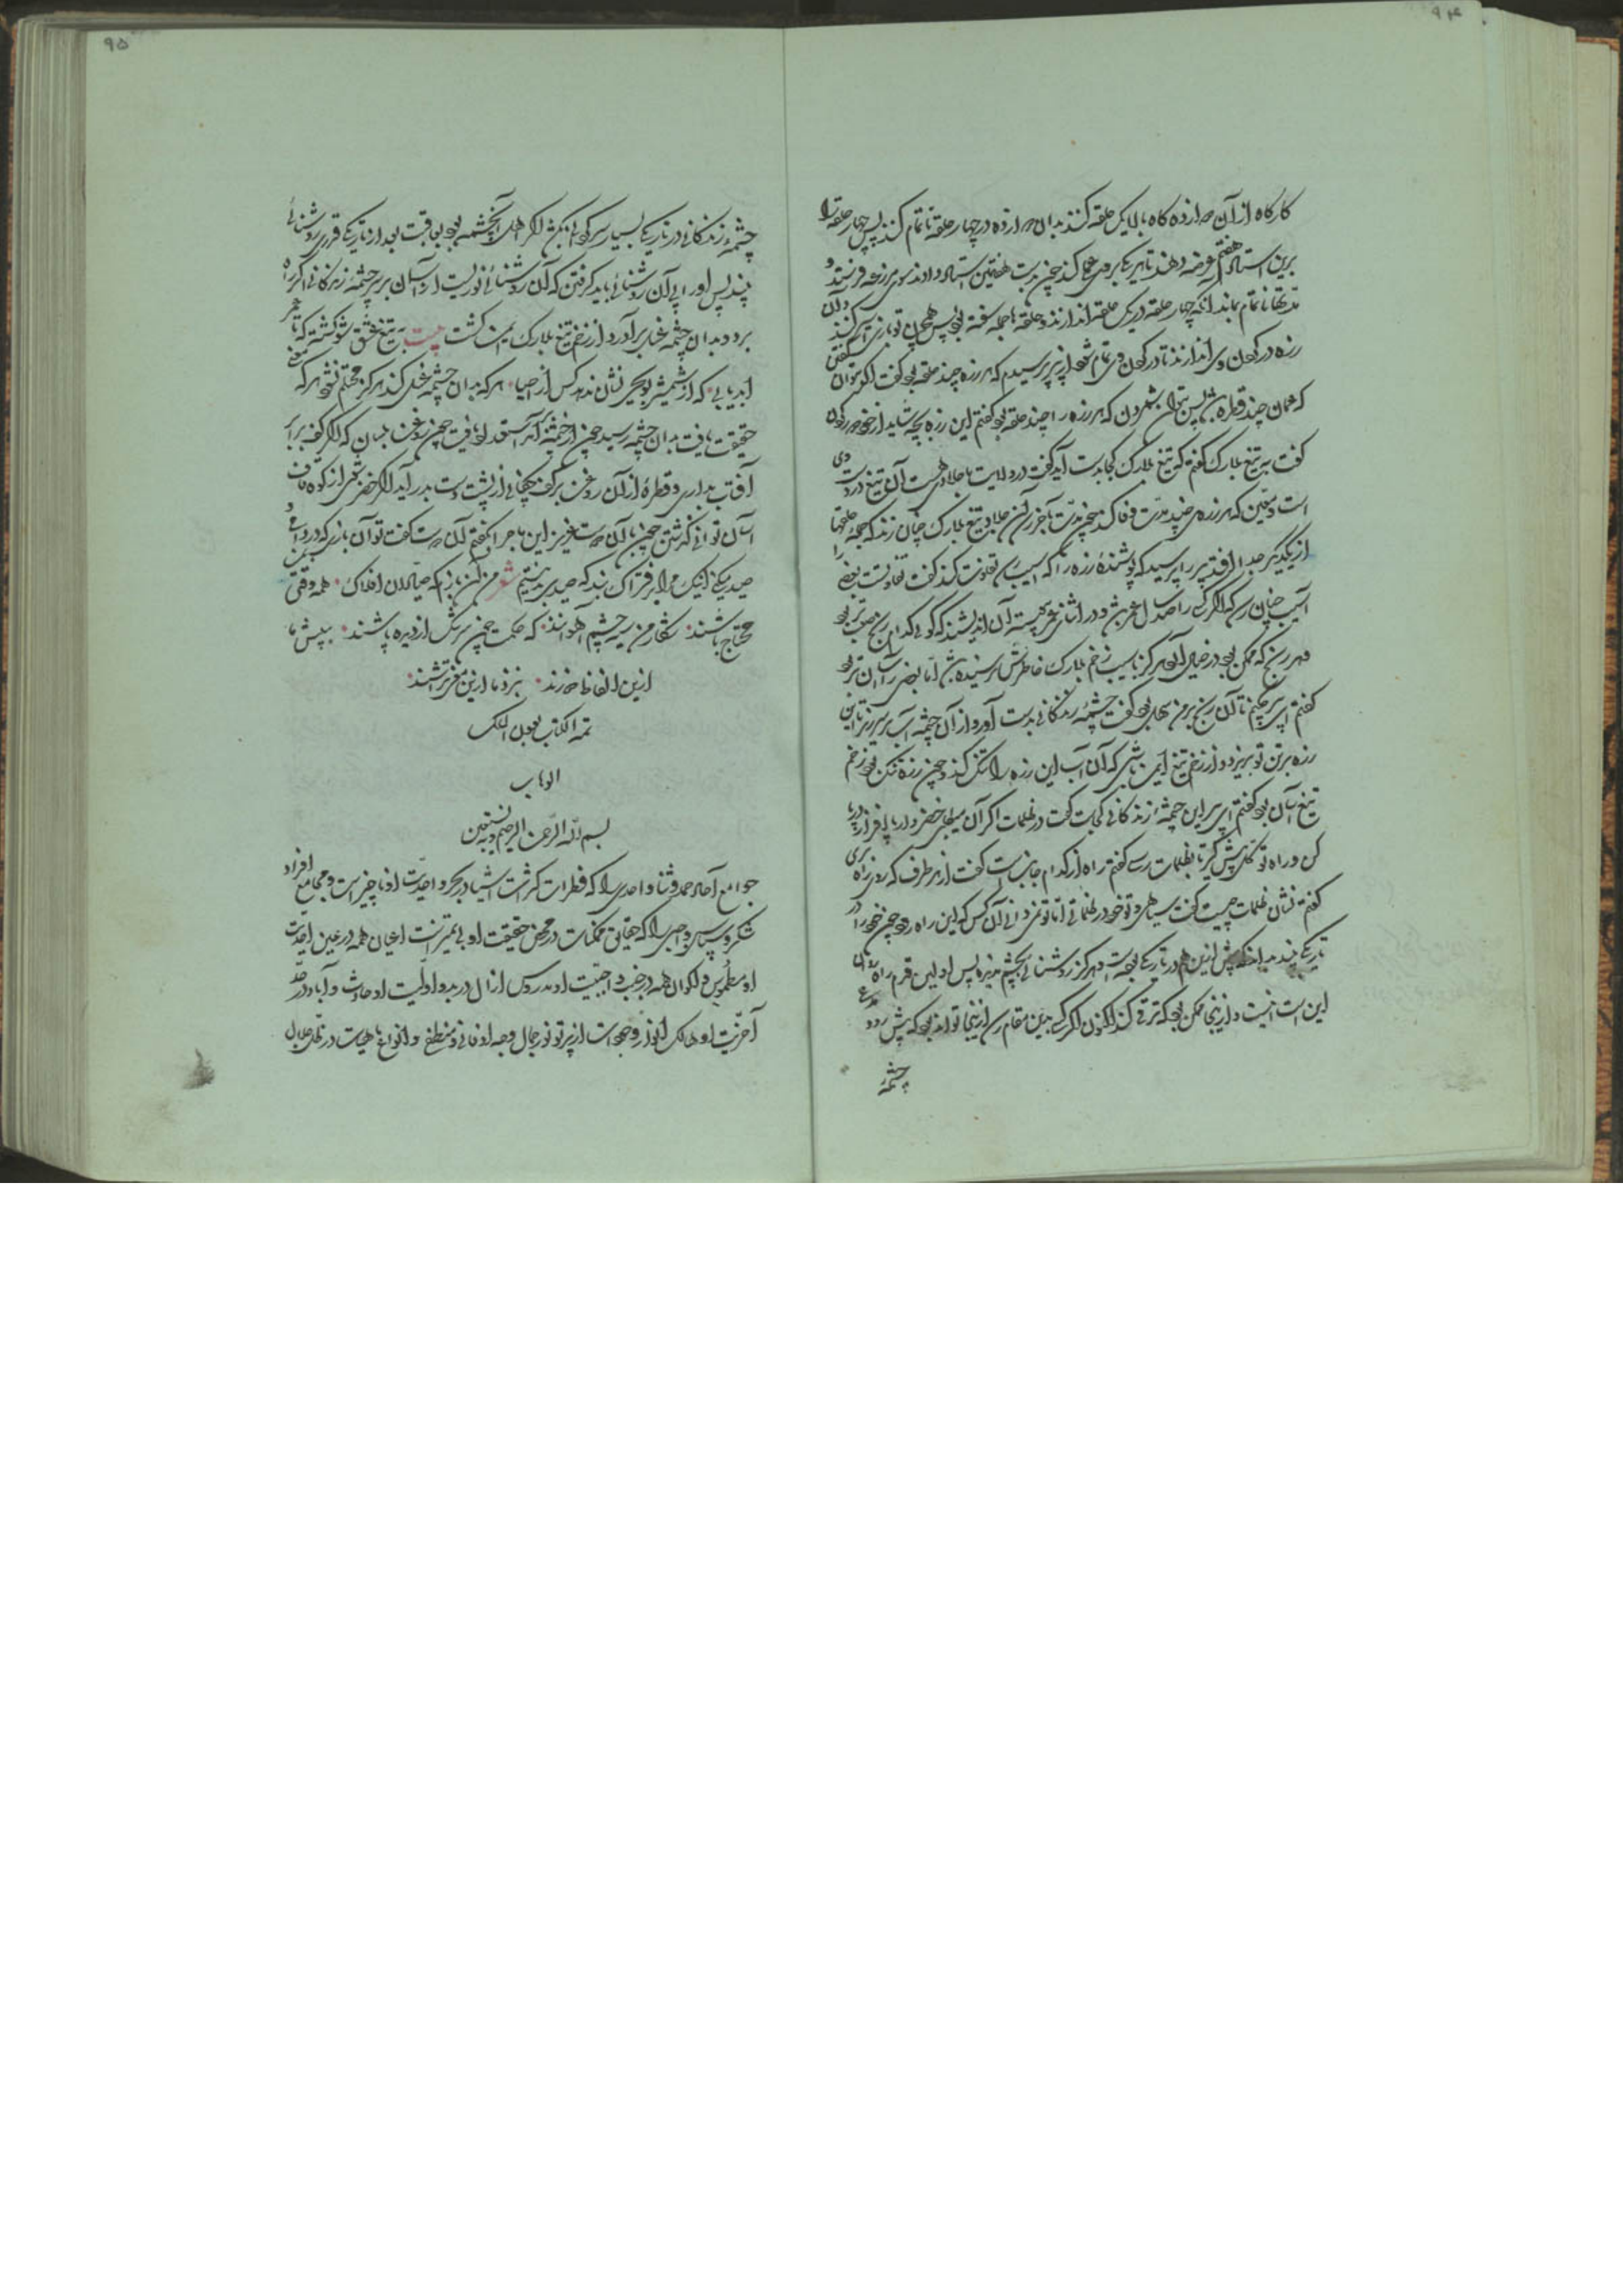 ۹۴
کارکاه از آن دوازده کاه بالا یک حلقه کنند بدان دوازده در چهار حلقه ناتمام کنند پس چهار حلقه را
برین استاد هفتم عرضه دهند تا هر یکی بر وی عملی کند چون بدست هفتمین استاد
مدتها ناتمام بماند انکه چهار حلقه در یک حلقه اندازند و حلقه با جمله سفته بود پس همچون تو بازی اسیر کنند و آن
زره در کردن وی اندازند تا در کردن وی تمام شود از پیر پرسیدم که هر زره چند حلقه بود کفت اکر بتوان کفتن
که عمان چند قطره باشد پس بتوان شمردن که هر زره را چند حلقه بود کفتم این زره بچه شاید از خود دور کردن
کفت به تیغ بلارک کفتم که تیغ بلارک کجا بدست آید کفت در ولایت ما جلادی هست آن تیغ در دست وی
است و معین که هر زره‌ی چند مدت وفا کند چون مدت بآخر رسد آن جلاد تیغ بلارک چنان زند که جمله حلقها
از یکدیگر جدا افتد پیر را پرسیدم که پوشنده زره را که آسیب رسد تفاوت کند کفت تفاوتست بعضی را
آسیب چنان رسد که اکر کسی را صد سال عمر باشد و در اثنای عمر پیوسته آن اندیشد که کوئی کدام رنج صعب‌تر بود
و هر رنج که ممکن بود در خیال آورد هرکز بآسیب زخم بلارک خاطرش نرسیده باشد اما بعضی را آسان‌تر بود
کفتم ای پیر چکنم تا آن رنج بر من سهل بود کفت چشمه زندکانی بدست آور و از آن چشمه آب بر سر ریز تا این
زره بر تن تو بریزد و از زخم تیغ ایمن باشی که آن آب این زره را تنک کند و چون زره تنک بود زخم
تیغ آسان بود کفتم ای پیر این چشمه زندکانی کجاست کفت در ظلمات اکر آن میطلبی خضروار پای افزار در پای
کن و راه توکل پیش کیر تا بظلمات رسی کفتم راه از کدام جانب است کفت از هر طرف که روی راه بری
کفتم نشان ظلمات چیست کفت سیاهی و تو خود در ظلماتی اما تو نمی‌دانی آن کس که این راه رود چون خود را در
تاریکی بیند بداند که پیش از این هم در تاریکی بوده است و هرکز روشنائی بچشم ندیده پس اولین قدم راه روان
این است و از اینجا ممکن بود که ترقی کند اکنون اکر کسی بدین مقام رسد از اینجا تواند بود که پیش رود
چشمه
۹۵
چشمه زندکانی در تاریکی بسیار سرکردانی بکشد اکر اهل آن چشمه بود بعاقبت بعد از تاریکی قدری روشنائی
بیند پس او را پی آن روشنائی نباید کرفتن که آن روشنائی نوریست از آسمان بر سر چشمه زندکانی اکر راه
برد و بدان چشمه غسل برآورد از زخم تیغ بلارک ایمن کشت بیت به تیغ عشق شو کشته که تا عمر
ابد یابی که از شمشیر بو یحیی نشان ندهد کس از احیا هر که بدان چشمه غسل کند هرکز محتلم نشود هر که معنی
حقیقت یافت بدان چشمه رسید چون از چشمه برآمد استعداد یافت چون روغن بلسان که اکر کف برابر
آفتاب بداری و قطره از آن روغن بر کف چکانی از پشت دست بدر آید اکر خضر شوی از کوه قاف
آسان توانی کذشتن چون با آن دوست عزیز این ماجرا بکفتم آن دوست کفت تو آن بازی که در دامی و
صید میکنی اینک مرا بر فتراک بند که صیدی بد نیستم شعر من آن بازم که صیادان افلاک همه وقتی بمن
محتاج باشند شکار من سیه چشم آهوانند که حکمت چون سرشک از دیده پاشند به پیش ما
ازین الفاظ دورند بنزد ما ازین معنی تراشند
تمه الکتاب بعون الملک
الوهاب
بسم الله الرحمن الرحیم و به نستعین
جوامع آحاد حمد و ثنا واحدی را که قطرات کثرت اشیا در بحر واحدیت او ناچیز است و مجامع افراد
شکر و سپاس واجبی را که حقایق ممکنات در محض حقیقت او بی تمیز است اعیان همه در عین احدیت
او مطموس و اکوان همه در جنب واجبیت او مدروس ازال در بدو اولیت او حادث و آباد در حد
آخریت او هالک انوار وجودات از پرتو نور جمال وجه او فانی و منطفی و انواع ماهیات در ظل جلال